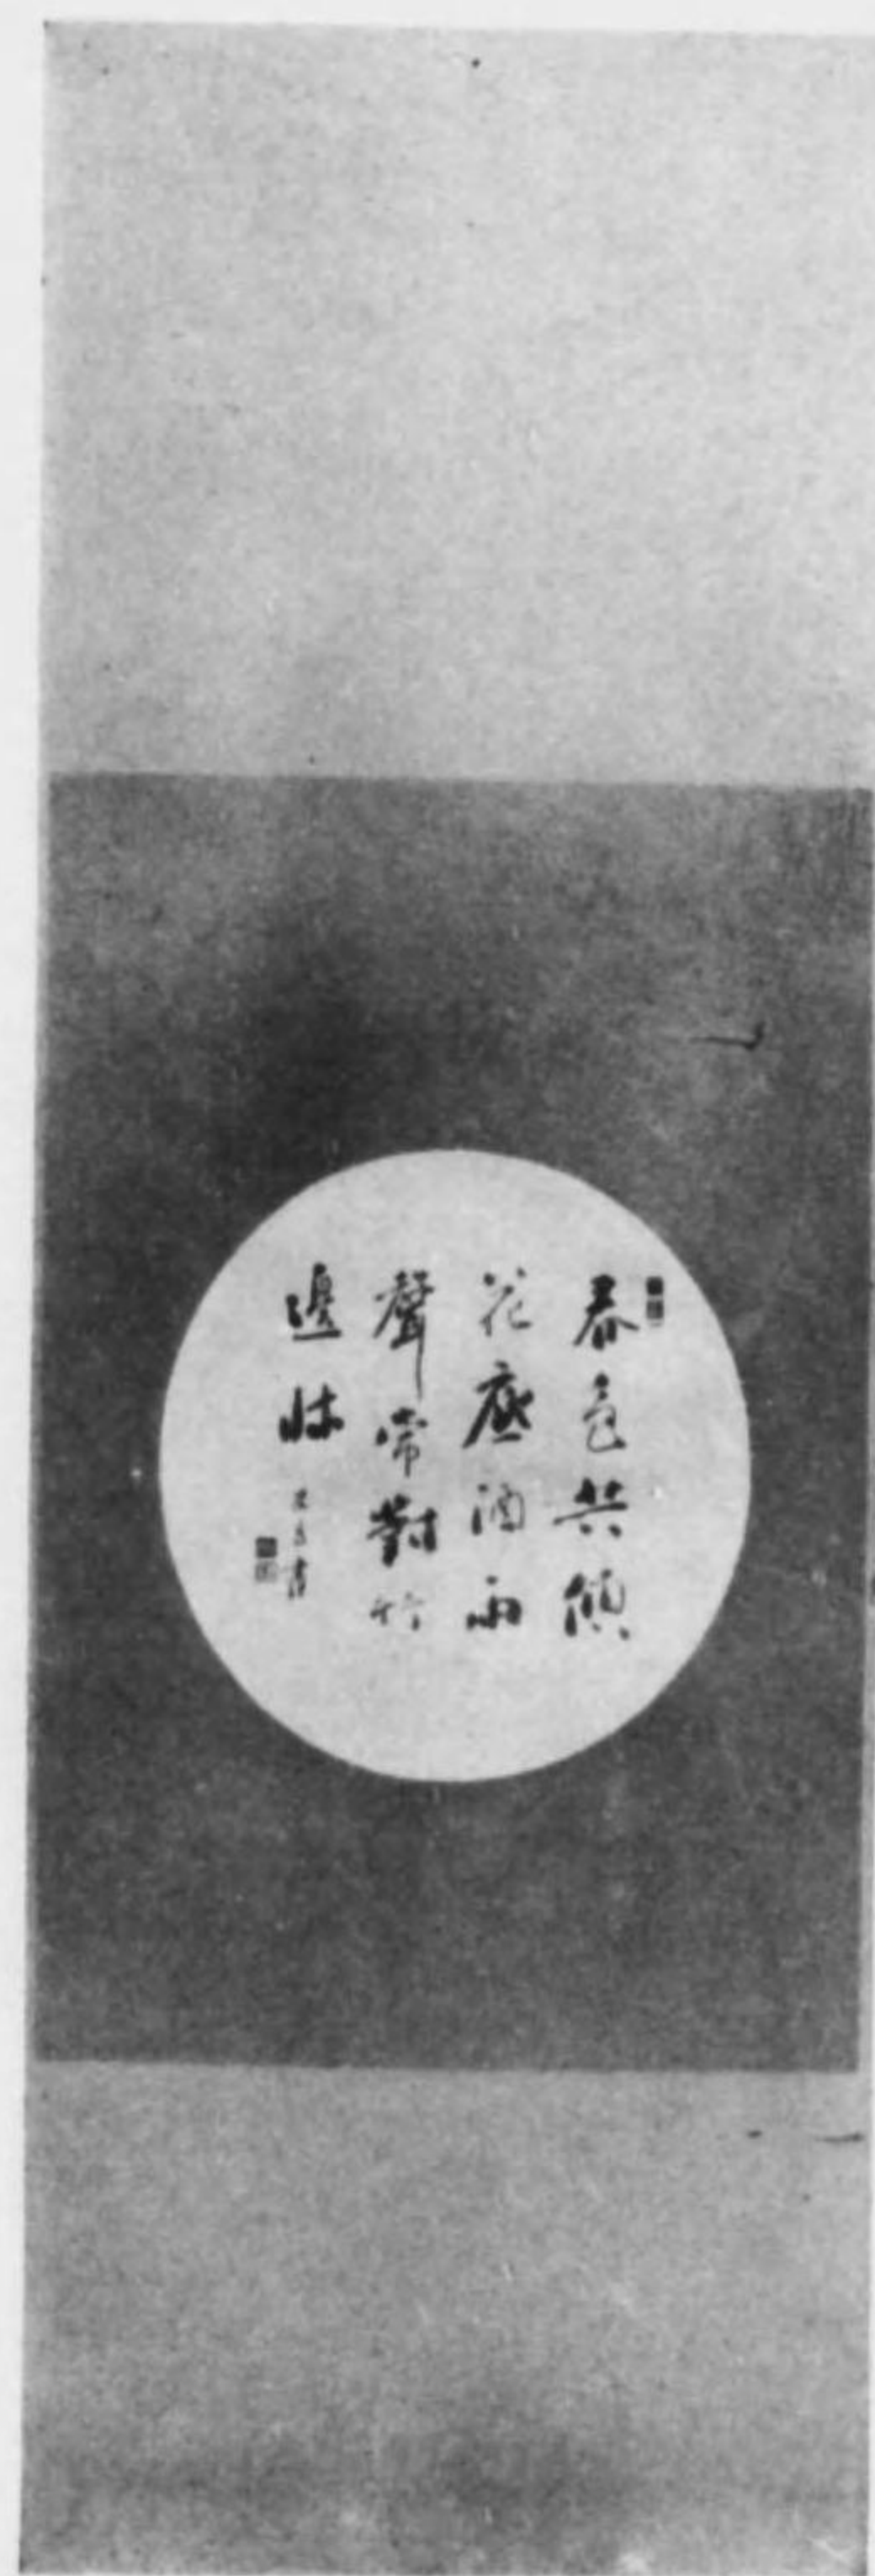 春色共傾
花底酒雨
聲常對竹
邊牀
書